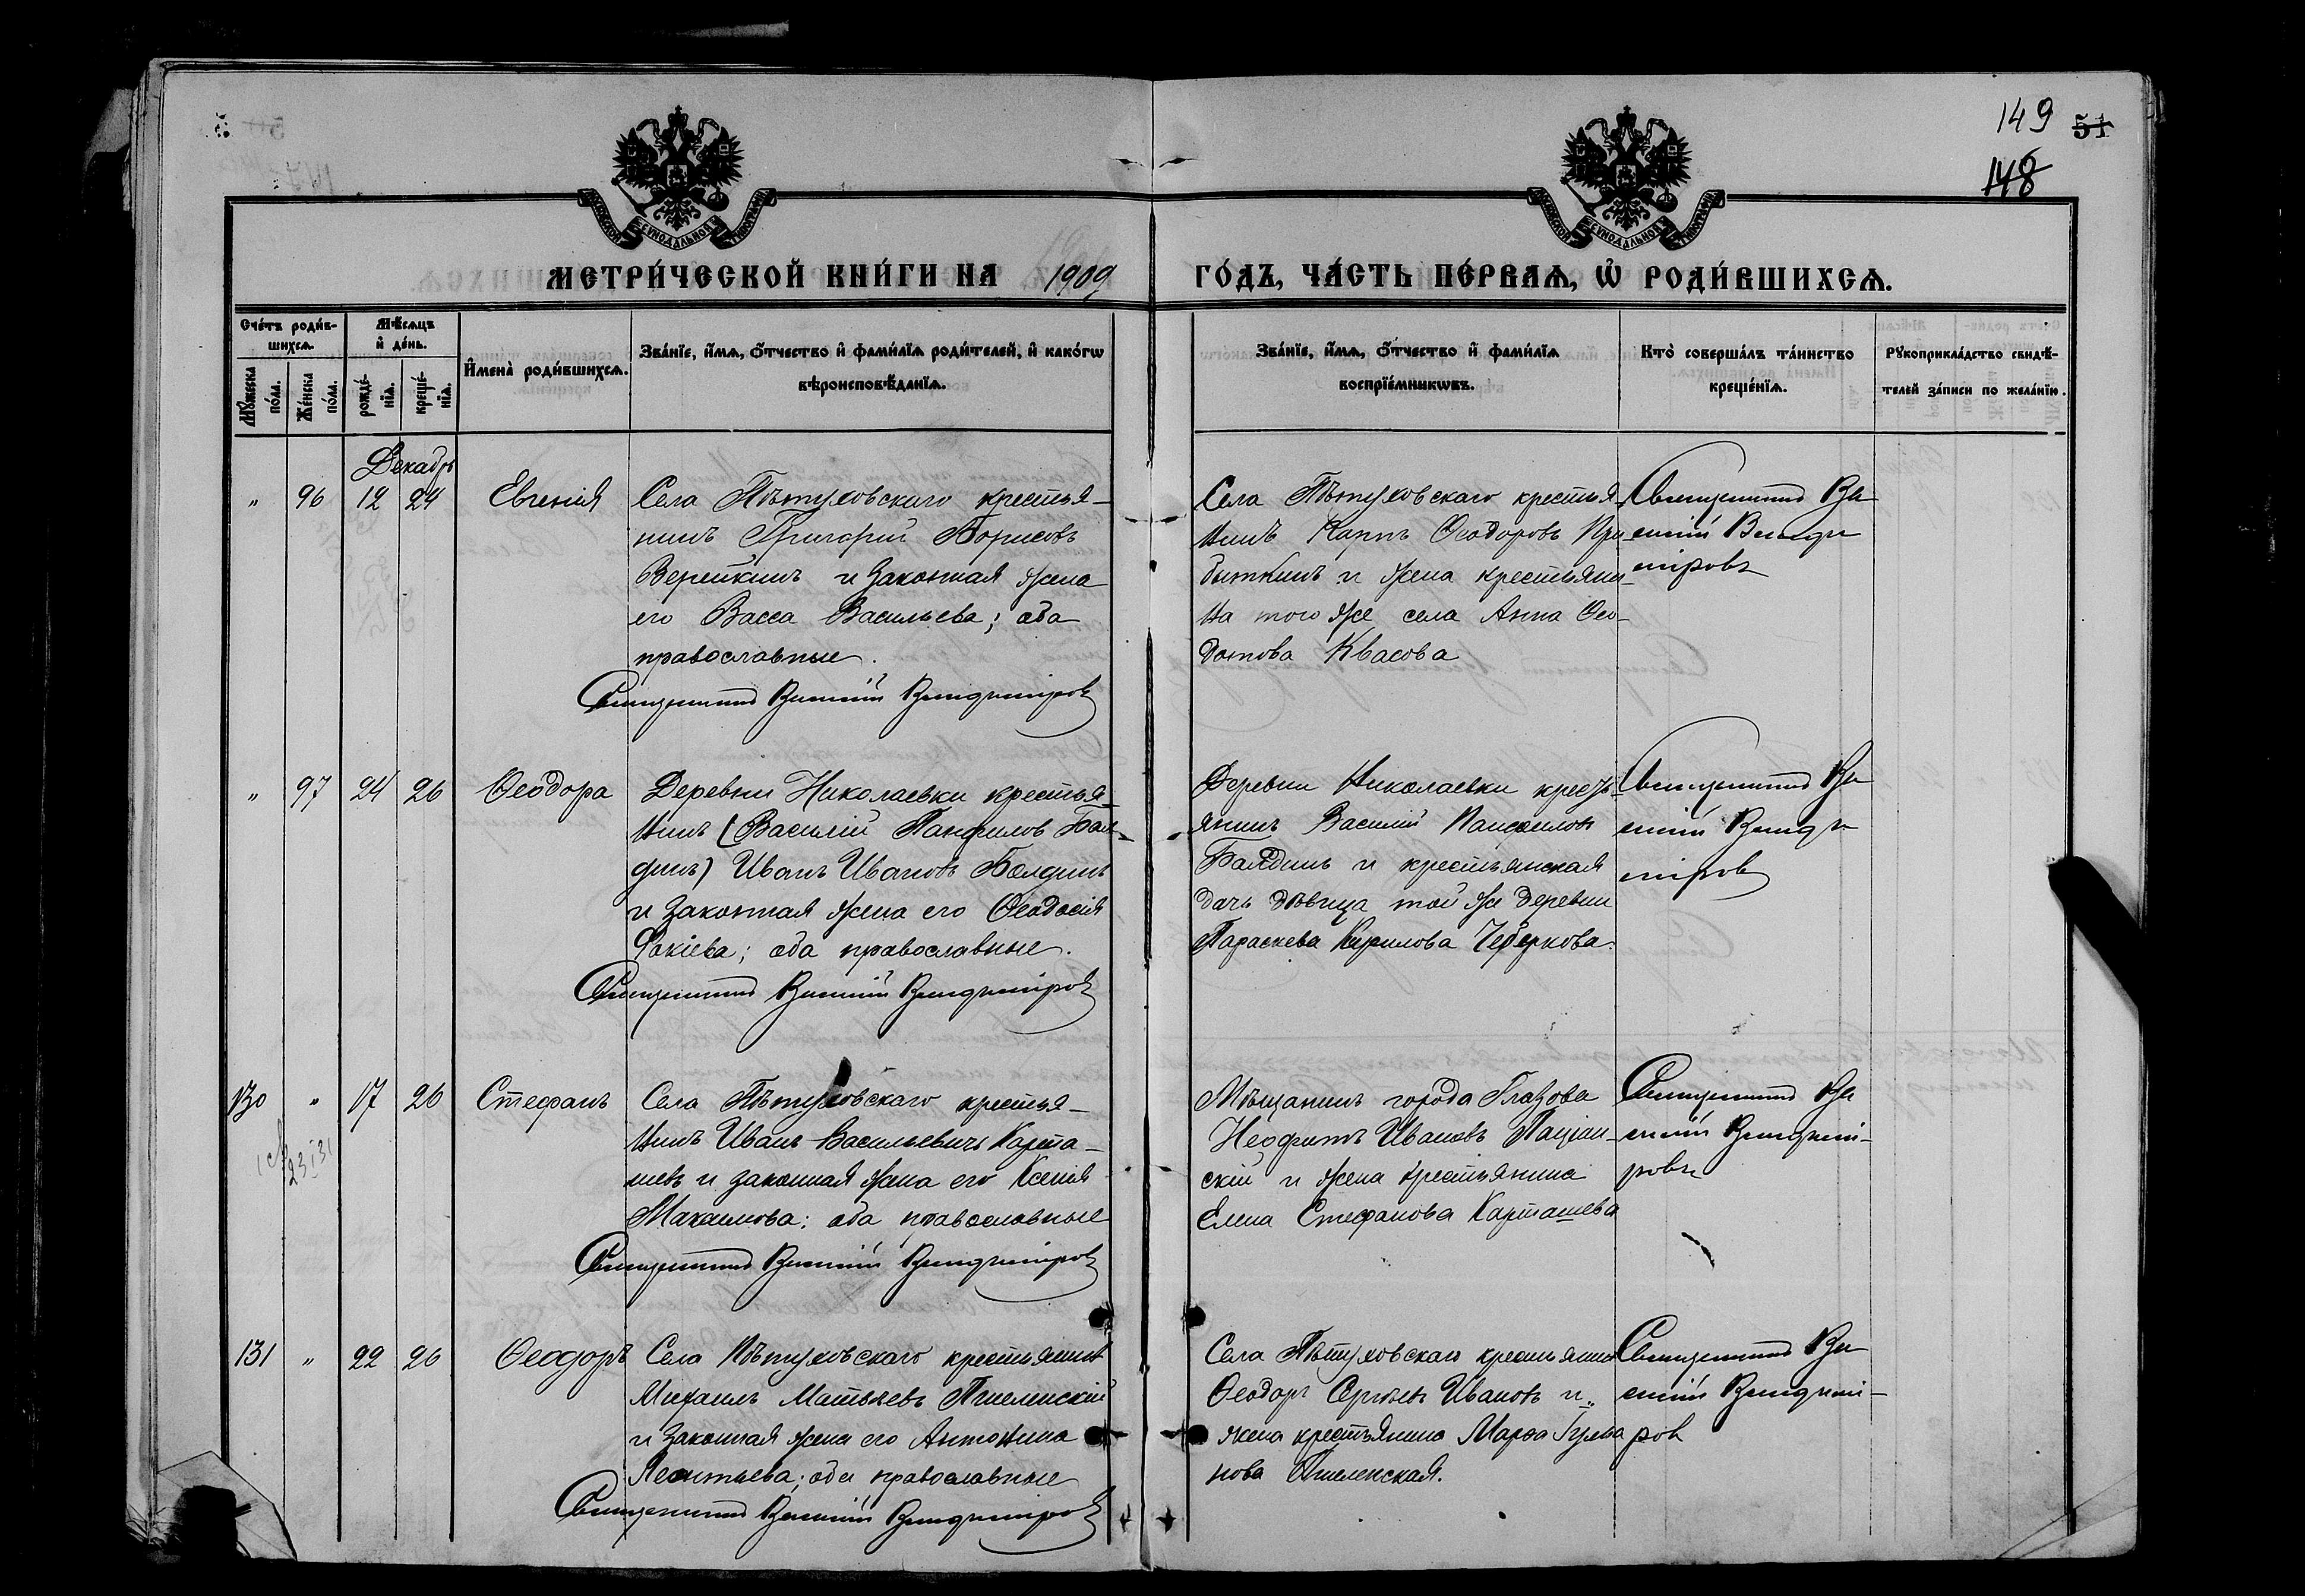 149 51
148
МОСКОВСКОЙ СѴНОДАЛЬНОЙ ТИПОГРАФІИ
МОСКОВСКОЙ СѴНОДАЛЬНОЙ ТИПОГРАФІИ
МЕТРИ́ЧЕСКОЙ КНИ́ГИ НА 1909 ГО́ДЪ, ЧА́СТЬ ПЕ́РВАѦ, Ѡ҆ РОДИ́ВШИХСѦ.
Сче́тъ роди́в-
шихсѧ.
Мѣ́сѧцъ
и҆ де́нь.
Мꙋ́жеска
по́ла.
Же́нска
по́ла.
рожде́-
нїѧ.
креще́-
нїѧ.
И҆мена̀ роди́вшихсѧ.
Зва́нїе, и҆́мѧ, ѻ҆́тчество и҆ фами́лїѧ роди́телей, и҆ како́гѡ
вѣроисповѣ́данїѧ.
Зва́нїе, и҆́мѧ, ѻ҆́тчество и҆ фами́лїѧ
воспрїе́мникѡвъ.
Кто̀ соверша́лъ та́инство
креще́нїѧ.
Рꙋкоприкла́дство свидѣ́-
телей за́писи по жела́нїю.
Декабрь
" 96 12 24 Евгенія
Села Пѣтуховскаго крестья-
нинъ Григорій Борисовъ
Верейкинъ и законная жена
его Васса Васильева; оба
православные.
Священникъ Василій Владиміровъ
Села Пѣтуховскаго крестья
нинъ Карпъ Ѳеодоровъ При
быткинъ и жена крестьяни-
на того же села Анна Ѳео-
дотова Квасова
Священникъ Ва
силій Влади
міровъ
" 97 24 26 Ѳеодора
Деревни Николаевки крестья
нинъ (Василій Панфилов Бол
динъ) Иванъ Ивановъ Болдинъ
и законная жена его Ѳеодосія
Фокіева; оба православные.
Священникъ Василій Владиміровъ
Деревни Николаевки кресть-
янинъ Василій Панфиловъ
Балдинъ и крестьянская
дочь дѣвица той же деревни
Параскева Кирилова
Священникъ Ва
силій Влади
міровъ
130 " 17 26 Стефанъ
Села Пѣтуховскаго крестья-
нинъ Иванъ Васильевичъ Карта-
шевъ и законная жена его Ксенія
Максимова; оба православные
Священникъ Василій Владиміровъ
Мѣщанинъ города Глазова
Неофитъ Ивановъ
и жена крестьянина
Елена Стефанова Карташева
Священникъ Ва
силій Владимі-
ровъ
131 " 22 26 Ѳеодоръ
Села Пѣтуховскаго крестьянинъ
Михаилъ Матвѣевъ Пшеленскій
и законная жена его Антонина
Леонтьева; оба православные
Священникъ Василій Владиміровъ
Села Пѣтуховскаго крестьянинъ
Ѳеодоръ Сергѣевъ Ивановъ и
жена крестьянина Марѳа
нова Пшеленская.
Священникъ Ва
силій Владимі-
ров